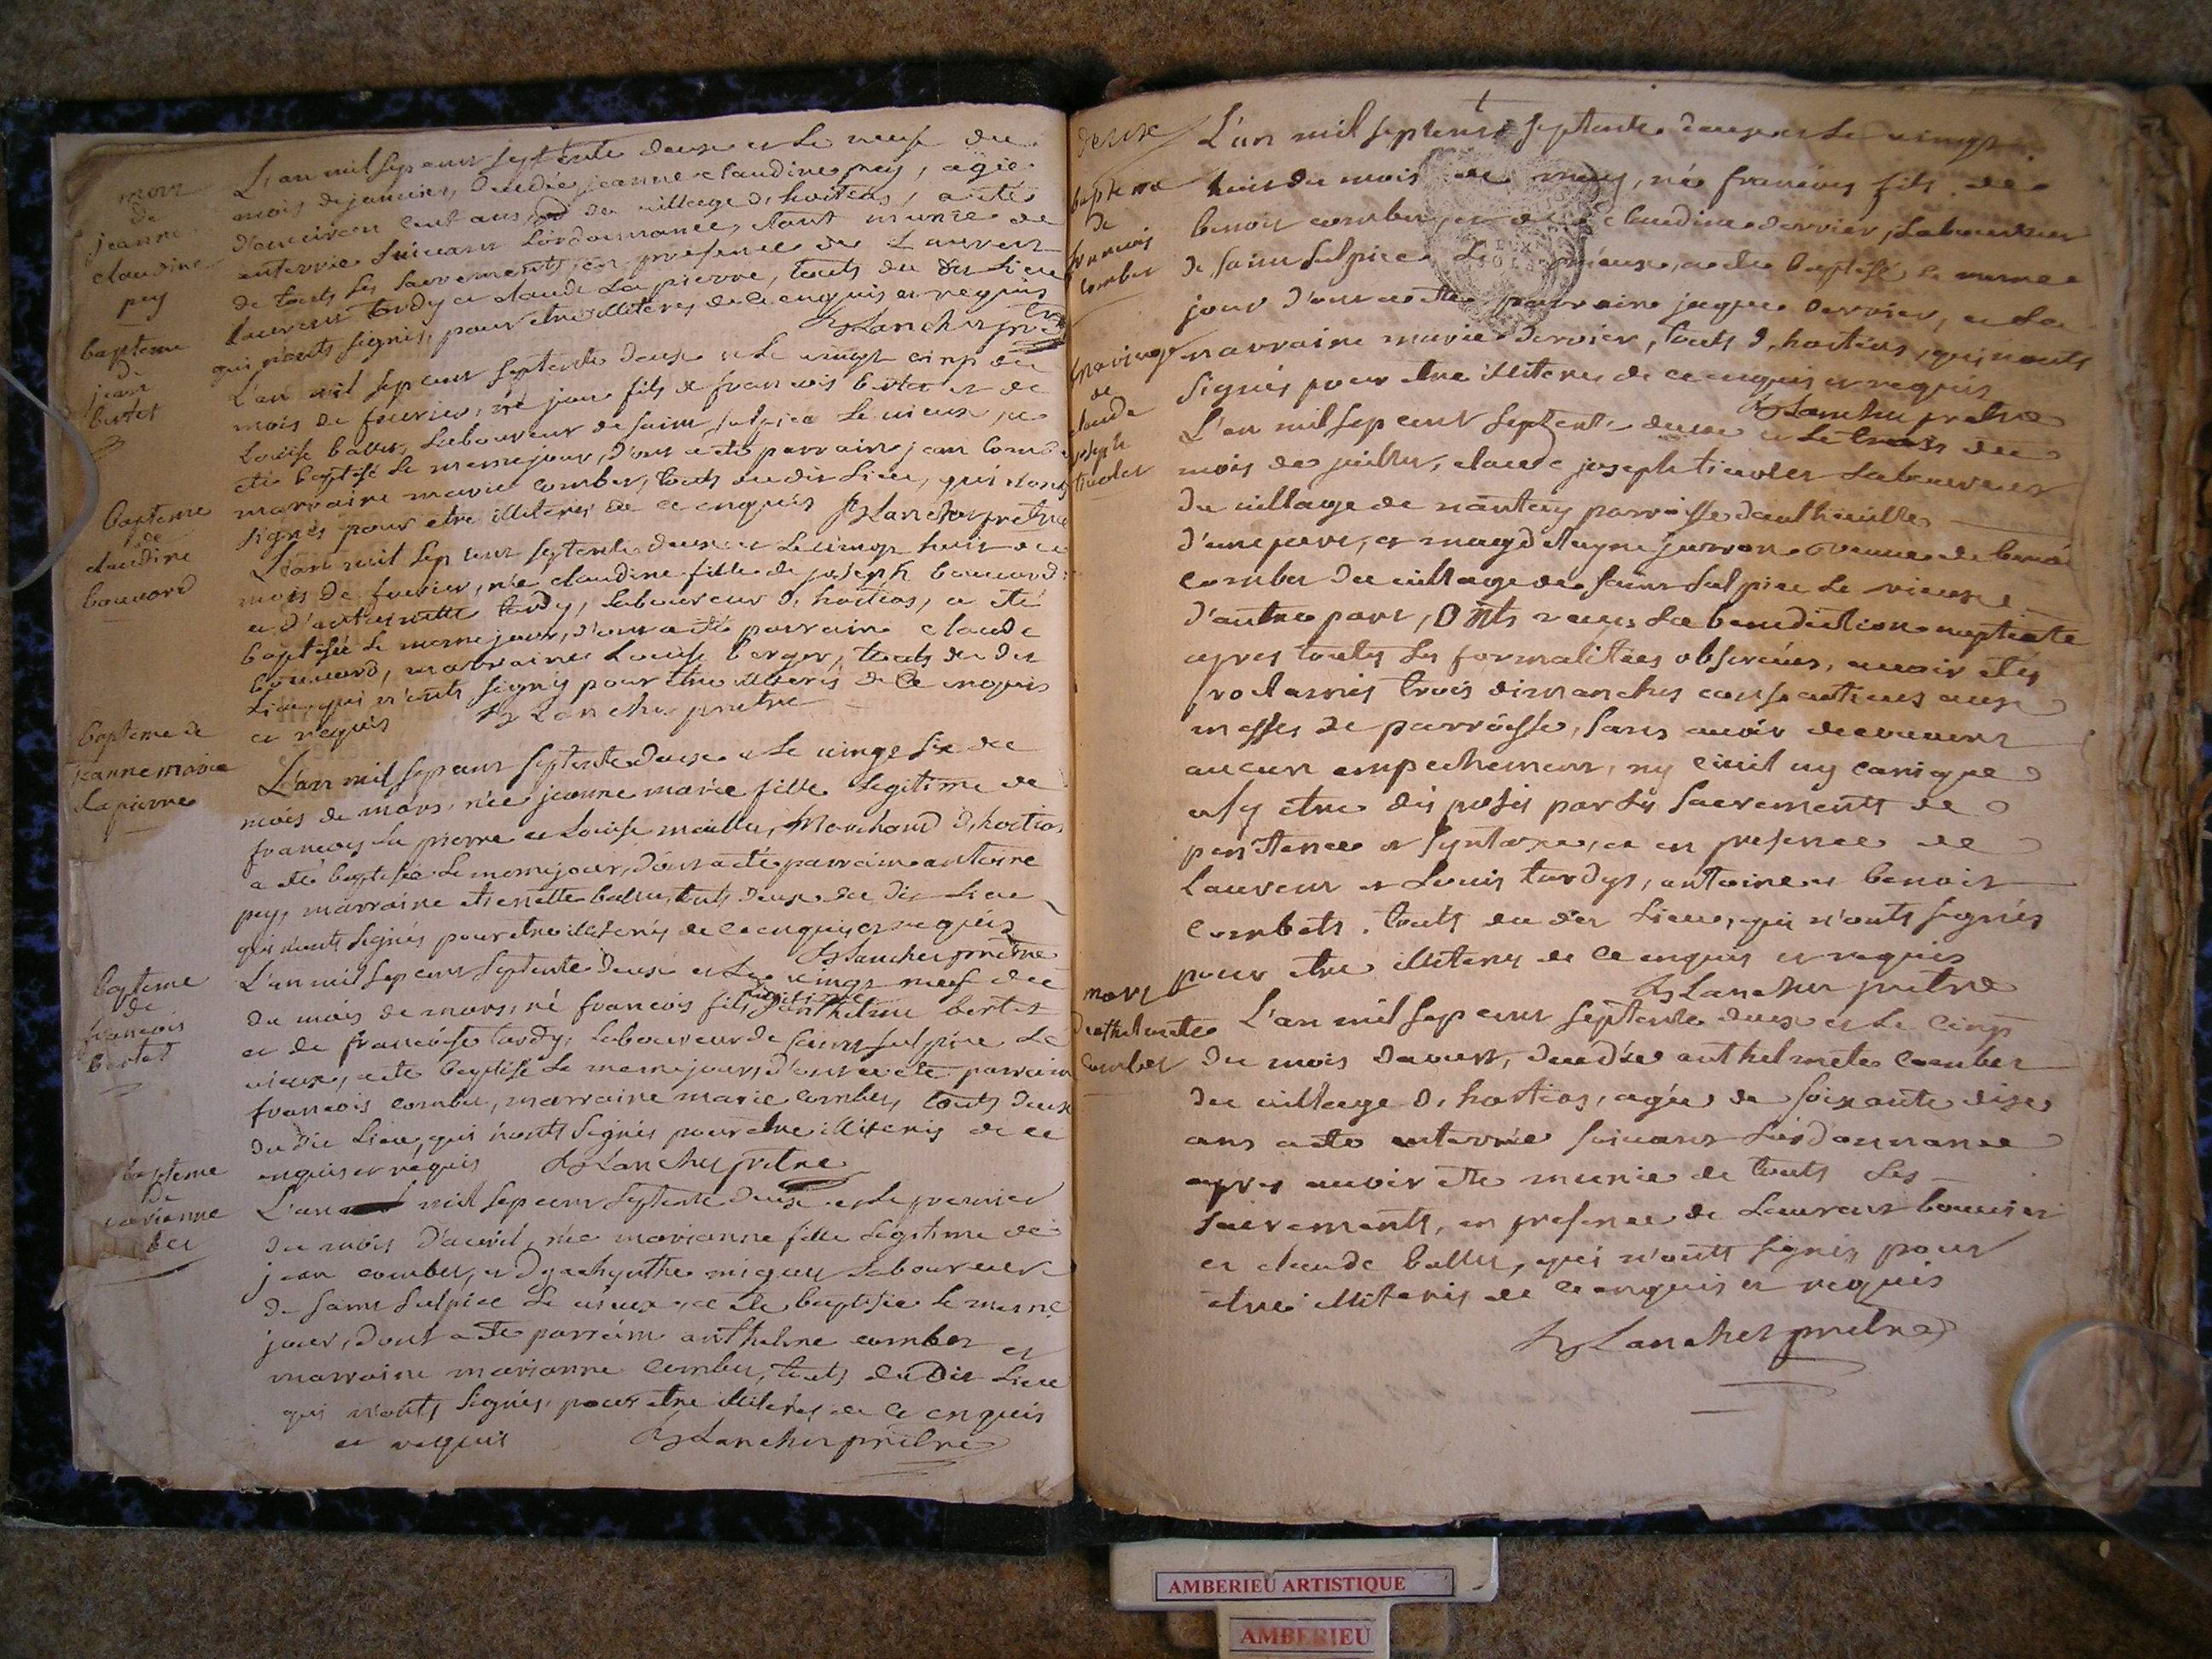 mort
de
jeanne
claudine
pey
L'an mil sept cent septente deux et le neuf du
mois de janvier, décédée jeanne claudine pey, agée
d'environ cent ans, du village d'hostias, a eté
enterrée suivant l'ordonnance, etant munie de
de touts les sacrements, en presence de Laurent
tardy et claude La pierre, touts du dit Lieu
qui n'onts signés, pour etre illiterés de ce enquis et requis
Lancher pretre
bapteme
de
jean
bertet
L'an mil sept cent septente deux et le vingt cinq du
mois de fevrier, né jean fils de francois bertet et de
Louise ballet, Laboureur de saint sulpice Le vieux, a
eté baptisé Le meme jour, d'ont a eté parrain jean
marraine marie combet, touts du dit Lieu, qui n'onts
signés pour etre illiterés de ce enquis Lancher pretre
bapteme
de
claudine
bouvard
L'an mil sept cent septente deux et Le vingt huit du
mois de fevrier, née claudine fille de joseph bouvard
et d'antoinette tardy, Laboureur d'hostias, a eté
baptisée Le meme jour, d'ont a eté parrain claude
bouvard, marraine Louise berger, touts du dit
Lieu, qui n'onts signés pour etre illiterés de ce enquis
et requis Lancher pretre
bapteme de
jeanne marie
La pierre
L'an mil sept cent septente deux et Le vingt six du
mois de mars, née jeanne marie fille Legitime de
francois La pierre et Louise maillet, Marchand d'hostias
a eté baptisée Le meme jour, dont a eté parrain antoine
pey, marraine etienette ballet, touts deux du dit Lieu
qui n'onts signés pour etre illiterés de ce enquis et requis
Lancher pretre
bapteme
de
francois
bertet
L'an mil sept cent septente deux et Le vingt neuf du
du mois de mars, né francois fils legitime d'anthelme bertet
et de francoise tardy, Laboureur de saint sulpice Le
vieux, a eté baptisé Le meme jour, d'ont a eté parrain
francois combet, marraine marie combet, touts deux
du dit Lieu, qui n'onts signés pour etre illiterés de ce
enquis et requis Lancher pretre
bapteme
de
marianne
L'an mil sept cent septente deux et le premier
du mois d'avril, née marianne fille Legitime de
jean combet, et d'yachynthe Laboureur
de saint sulpice Le vieux, a eté baptisée Le meme
jour, dont a eté parrain anthelme combet et
marraine marianne combet, touts du Dit Lieu
qui n'onts signés, pour etre illiterés de ce enquis
et requis Lancher pretre
deux
bapteme
de
francois
combet
L'an mil sept cent septente deux et Le vingt
huit du mois de may, né francois fils de
benoit combet, et de claudine derrier, Laboureur
de saint sulpice Le vieux, a eté baptisé le meme
jour d'ont a eté parrain jaque derrier, et La
marraine marie derrier, touts d'hostias, qui n'onts
signés pour etre illiterés de ce enquis et requis
Lancher pretre
mariage
de
claude
joseph
tivolet
L'an mil sept cent septente deux et Le trois du
mois de juillet, claude joseph tivolet Laboureur
du village de nantuy parroisse
d'une part, et magdelayne veuve de benoit
combet du village de saint sulpice Le vieux
d'autre part, Onts reçus La benediction nuptiale
apres toutes Les formalitées observées, avoir etés
proclamés trois dimanches consecutives aux
messes de parroisse, sans avoir decouvert
aucun empechement, ny civil ny canique
et s'y etre disposés par Les sacrements de
penitence et synthaxe, et en presence de
Laurent et Louis tardys, antoine et benoit
combets. touts du dit Lieu, qui n'onts signés
pour etre illiterés de ce enquis et requis
Lancher pretre
mort
d'anthelmette
combet
L'an mil sept cent septente deux et Le cinq
du mois d'aoust, decedée anthelmete combet
du village d'hostias, agée de soixante dix
ans a eté enterrée suivant L'ordonnance
apres avoir eté munie de touts Les
sacrements, en presence de Laurent bouvier
et claude ballet, qui n'onts signés pour
etre illiterés de ce enquis et requis
Lancher pretre
AMBERIEU ARTISTIQUE
AMBERIEU